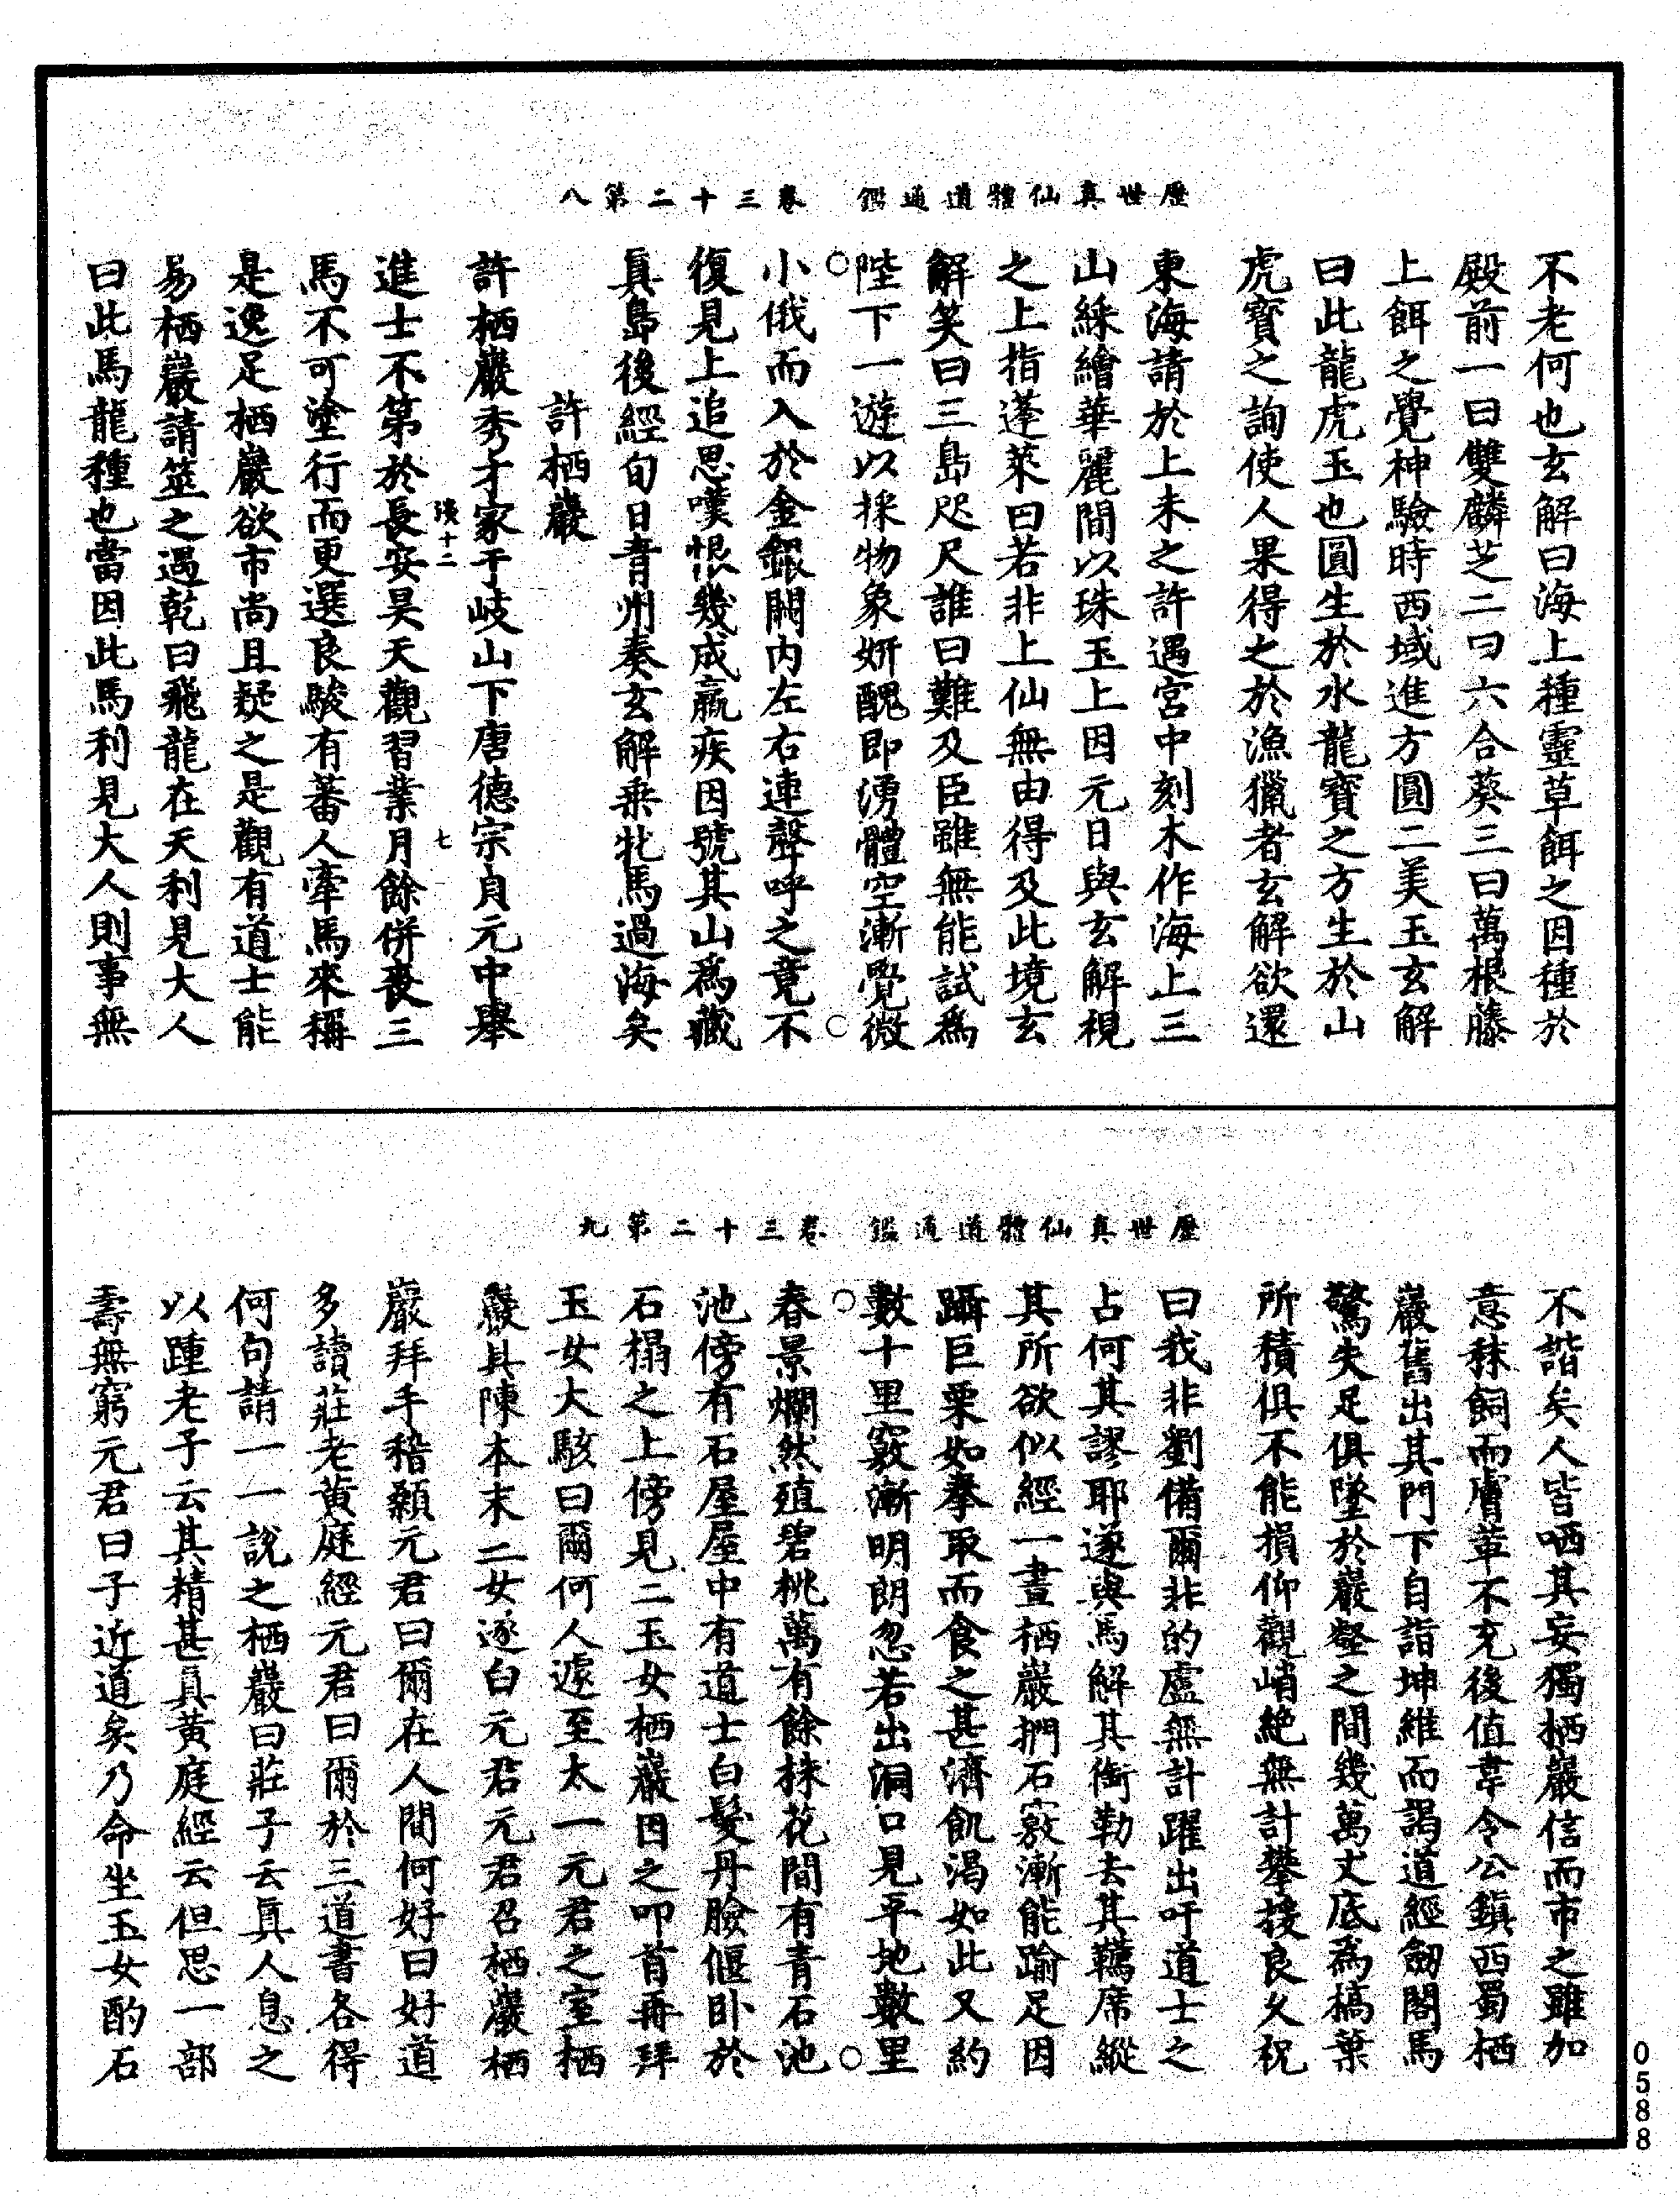 歷世真仙體道通鑑 卷三十二第八
不老何也玄解曰海上種靈草餌之因種於
殿前一曰雙麟芝二曰六合葵三曰萬根藤
上餌之覺神驗時西域進方圓二美玉玄解
曰此龍虎玉也圓生於水龍寶之方生於山
虎寶之詢使人果得之於漁獵者玄解欲還
東海請於上未之許遇宮中刻木作海上三
山綵繪華麗間以珠玉上因元日與玄解視
之上指蓬萊曰若非上仙無由得及此境玄
解笑曰三島咫尺誰曰難及臣雖無能試爲
陛下一遊以採物象妍醜即湧體空漸覺微
小俄而入於金銀闕內左右連聲呼之竟不
復見上追思嘆恨幾成羸疾因號其山爲藏
真島後經旬日青州奏玄解乘牝馬過海矣
許栖巖
許栖巖秀才家于岐山下唐德宗貞元中舉
十二 七
進士不第於長安昊天觀習業月餘併喪三
馬不可塗行而更選良駿有蕃人牽馬來稱
是逸足栖巖欲市尚且疑之是觀有道士能
易栖巖請筮之遇乾曰飛龍在天利見大人
曰此馬龍種也當因此馬利見大人則事無
歷世真仙體道通鑑 卷三十二第九
不諧矣人皆哂其妄獨栖巖信而市之雖加
意秣飼而膚革不充後值韋令公鎮西蜀栖
巖舊出其門下自詣坤維而謁道經劒閣馬
驚失足俱墜於巖壑之間幾萬丈底爲槁葉
所積俱不能損仰觀峭絶無計攀援良久祝
曰我非劉備爾非的盧無計躍出吁道士之
占何其謬耶遂與馬解其銜勒去其韉席縱
其所欲似經一晝栖巖捫石竅漸能踰足因
躡巨栗如拳取而食之甚濟飢渴如此又約
數十里竅漸明朗忽若出洞口見平地數里
春景爛然殖碧桃萬有餘株花間有青石池
池傍有石屋屋中有道士白髮丹臉偃卧於
石榻之上傍見二玉女栖巖因之叩首再拜
玉女大駭曰爾何人遽至太一元君之室栖
巖具陳本末二女遂白元君元君召栖巖栖
巖拜手稽顙元君曰爾在人間何好曰好道
多讀莊老黄庭經元君曰爾於三道書各得
何句請一一說之栖巖曰莊子云真人息之
以踵老子云其精甚真黄庭經云但思一部
壽無窮元君曰子近道矣乃命坐玉女酌石
0588